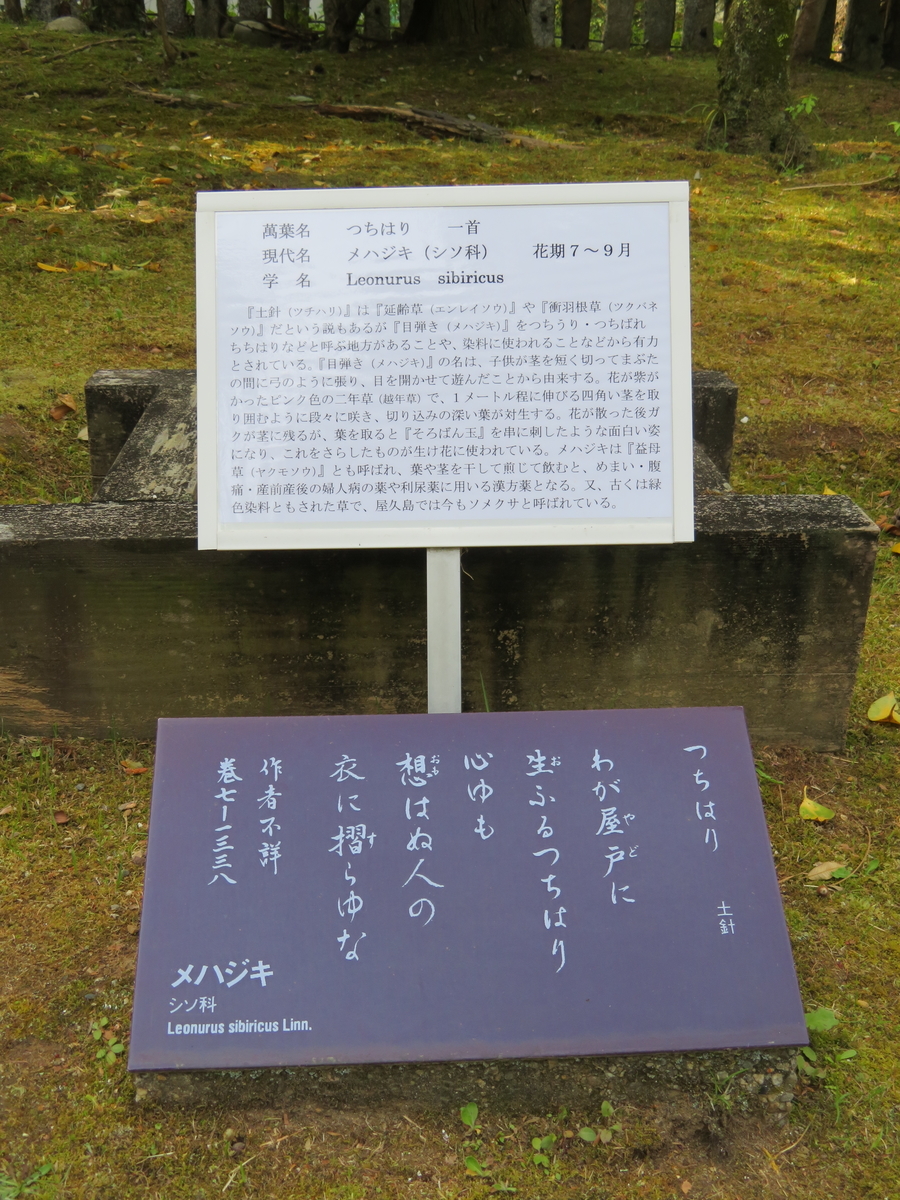 萬葉名 つちはり 一首
現代名 メハジキ（シソ科） 花期７～９月
学 名 Leonurus sibiricus
『土針（ツチハリ）』は『延齢草（エンレイソウ）』や『衝羽根草（ツクバネ
ソウ）』だという説もあるが『目弾き（メハジキ）』をつちうり・つちばれ
ちちはりなどと呼ぶ地方があることや、染料に使われることなどから有力
とされている。『目弾き（メハジキ）』の名は、子供が茎を短く切ってまぶた
の間に弓のように張り、目を開かせて遊んだことから由来する。花が紫が
かったピンク色の二年草（越年草）で、１メートル程に伸びる四角い茎を取
り囲むように段々に咲き、切り込みの深い葉が対生する。花が散った後ガ
クが茎に残るが、葉を取ると『そろばん玉』を串に刺したような面白い姿
になり、これをさらしたものが生け花に使われている。メハジキは『益母
草（ヤクモソウ）』とも呼ばれ、葉や茎を干して煎じて飲むと、めまい・腹
痛・産前産後の婦人病の薬や利尿薬に用いる漢方薬となる。又、古くは緑
色染料ともされた草で、屋久島では今もソメクサと呼ばれている。
つちはり 土針
わが屋戸やどに
生おふるつちはり
心ゆも
想おもはぬ人の
衣に摺すらゆな
作者不詳
巻七―一三三八
メハジキ
シソ科
Leonurus sibiricus Linn.